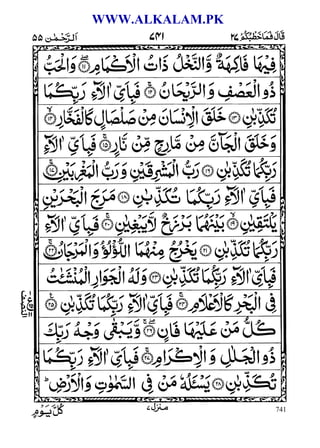 WWW.ALKALAM.PK
قَالَ فَمَا خَطْبُكُمْ ٢٧
٧٤١
اَلرَّحْمٰن ٥٥
فِيْهَا فَاكِهَةٌ وَّالنَّخْلُ ذَاتُ الْاَكْمَامِ ۝١١ وَالْحَبُّ
ذُو الْعَصْفِ وَالرَّيْحَانُ ۝١٢ فَبِاَيِّ اٰلَآءِ رَبِّكُمَا
تُكَذِّبٰنِ ۝١٣ خَلَقَ الْاِنْسَانَ مِنْ صَلْصَالٍ كَالْفَخَّارِ ۝١٤
وَخَلَقَ الْجَآنَّ مِنْ مَّارِجٍ مِّنْ نَّارٍ ۝١٥ فَبِاَيِّ اٰلَآءِ
رَبِّكُمَا تُكَذِّبٰنِ ۝١٦ رَبُّ الْمَشْرِقَيْنِ وَرَبُّ الْمَغْرِبَيْنِ ۝١٧
فَبِاَيِّ اٰلَآءِ رَبِّكُمَا تُكَذِّبٰنِ ۝١٨ مَرَجَ الْبَحْرَيْنِ
يَلْتَقِيٰنِ ۝١٩ بَيْنَهُمَا بَرْزَخٌ لَّا يَبْغِيٰنِ ۝٢٠ فَبِاَيِّ اٰلَآءِ
رَبِّكُمَا تُكَذِّبٰنِ ۝٢١ يَخْرُجُ مِنْهُمَا اللُّؤْلُؤُ وَالْمَرْجَانُ ۝٢٢
فَبِاَيِّ اٰلَآءِ رَبِّكُمَا تُكَذِّبٰنِ ۝٢٣ وَلَهُ الْجَوَارِ الْمُنْشَئٰتُ
فِي الْبَحْرِ كَالْاَعْلَامِ ۝٢٤ فَبِاَيِّ اٰلَآءِ رَبِّكُمَا تُكَذِّبٰنِ ۝٢٥
كُلُّ مَنْ عَلَيْهَا فَانٍ ۝٢٦ وَّيَبْقٰى وَجْهُ رَبِّكَ
ذُو الْجَلٰلِ وَالْاِكْرَامِ ۝٢٧ فَبِاَيِّ اٰلَآءِ رَبِّكُمَا
تُكَذِّبٰنِ ۝٢٨ يَسْئَلُهٗ مَنْ فِي السَّمٰوٰتِ وَالْاَرْضِ ط
كُلَّ يَوْمٍ
منزل ٧
741